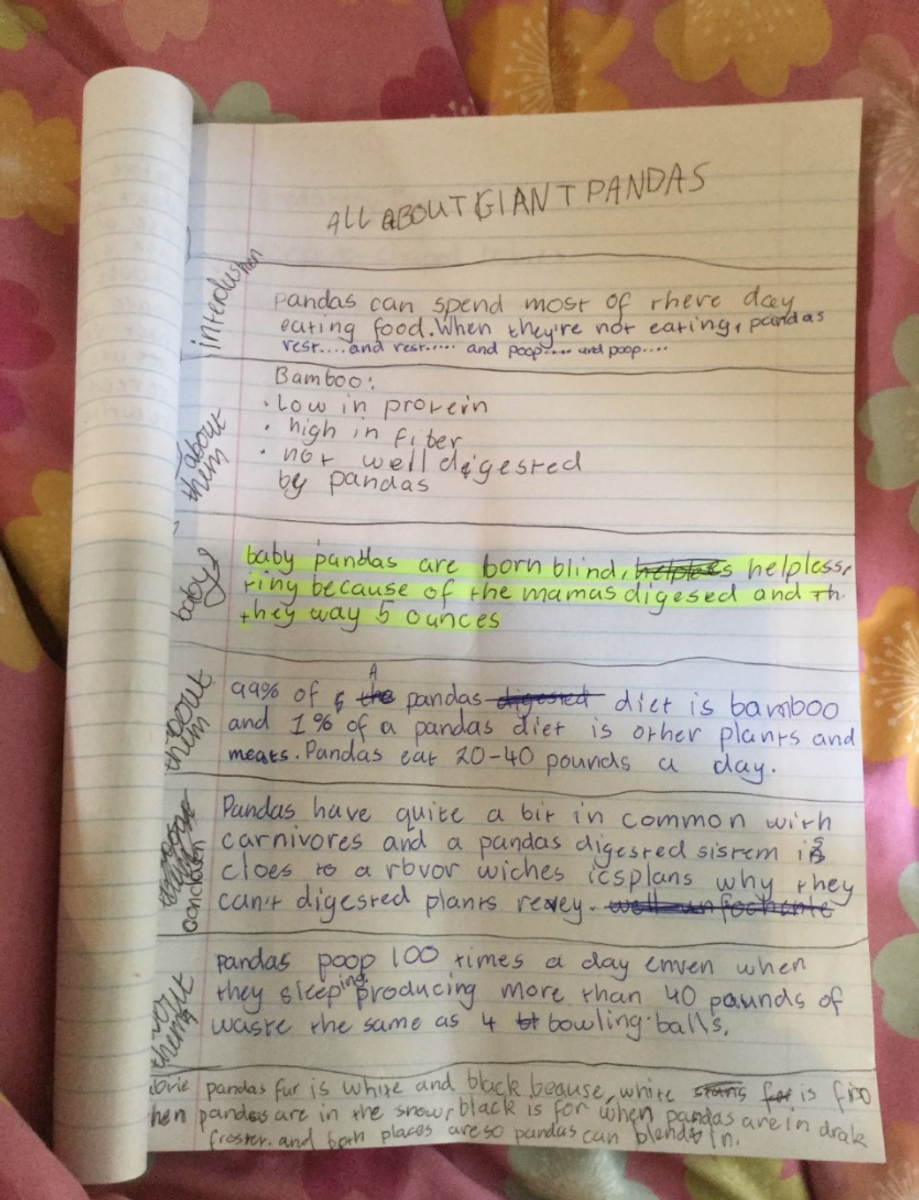 ALL ABOUT GIANT PANDAS
interdushen
pandas can spend most of there day
eating food. When they're not eating, pandas
rest.... and rest..... and poop..... and poop....
about
them
Bamboo:
• Low in protein
• high in fiber
• not well digested
by pandas
babys
baby pandas are born blind, helples helpless,
tiny because of the mamas digesed and th
they way 5 ounces
about
them
99% of the A pandas digested diet is bamboo
and 1% of a pandas diet is other plants and
meats. Pandas eat 20-40 pounds a day.
Pandas have quite a bit in common with
carnivores and a pandas digested sistem is
cloes to a wiches icsplans why they
can't digested plants revey. well unfochante
pandas poop 100 times a day enven when
they sleeping producing more than 40 pounds of
waste the same as 4 bowling balls.
pandas fur is white and black beause, white is
hen pandas are in the snow, black is for when pandas are in drak
froster. and both places are so pandas can blend in.